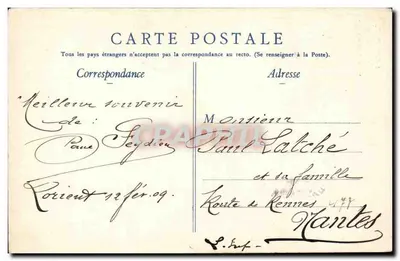 CARTE POSTALE
Tous les pays étrangers n'acceptent pas la correspondance au recto. (Se renseigner à la Poste).
Correspondance
Adresse
Meilleur souvenir
de :
Paul Feydieu
Lorient 12 fév. 09.
Monsieur
Paul Latché
et sa famille
Route de Rennes 177
Nantes